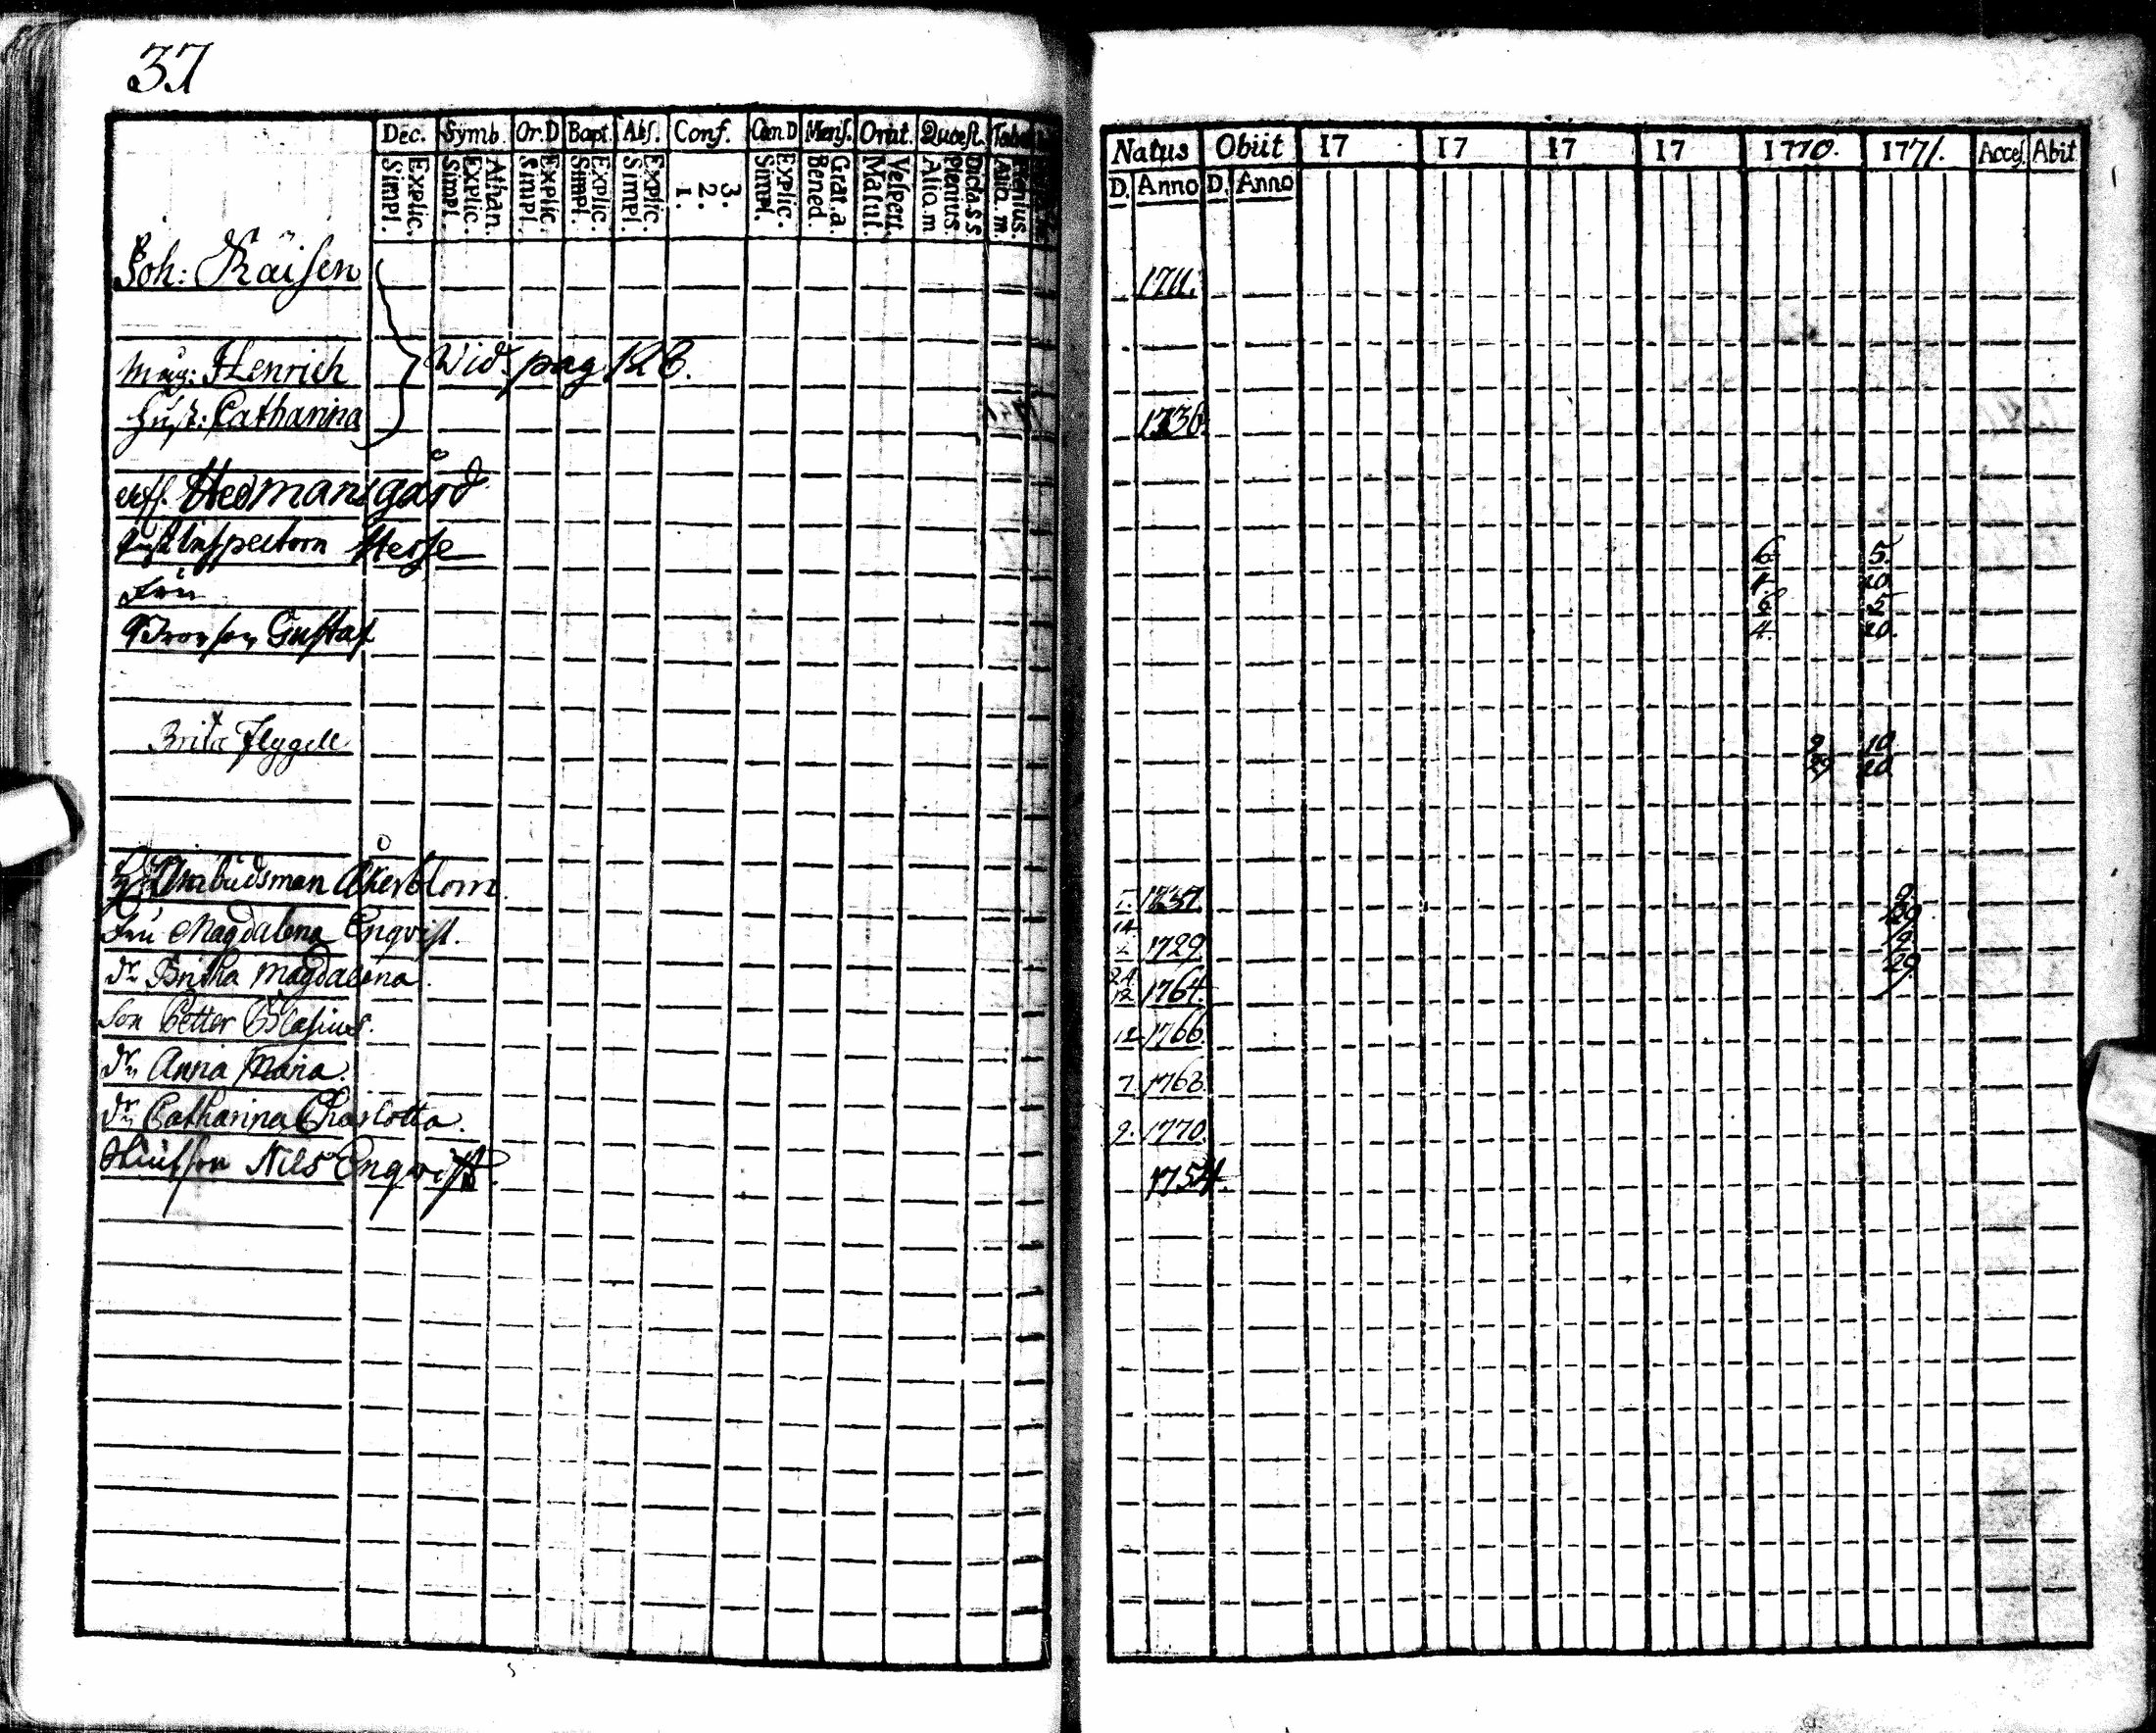 37
Dec. Symb. Or.D Bapt. Abs. Conf. Cœn D Mens. Orat. Quæst. Tabel
Simpl. Explic. Simpl. Explic. Athan. Simpl. Explic. Simpl. Explic. Simpl. Explic. 1. 2. 3. Simpl. Explic. Bened. Grat. a. Matut. Vespert. Alio. m Plenius. Dicta S S. Alio. m. Plenius.
Natus Obiit 17 17 17 17 1770. 1771. Acces. Abit
D. Anno D. Anno
Joh: Räisen 1711.
Måg: Henrich Vid. pag 128.
Hust: Catharina 1736.
Hedmansgård
Inspectorn Herse 6. 5.
1. 20.
Fru 6. 5
Gustaf 4. 20.
Brita Flygell 9 10
29 20
Ambudsman Åkerblom 1737. 9.
29
Fru Magdalena Enqvist. 14 1729. 9.
29.
dr Britha Magdalena. 24 12 1764.
Son Petter Blasius. 12. 1766.
dr Anna Maria. 7. 1768.
dr Catharina Charlotta. 9. 1770.
Nils Enqvist. 1754.